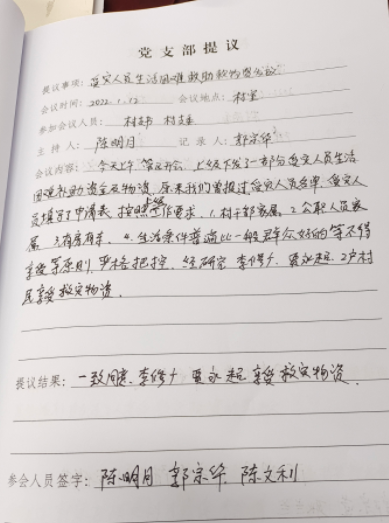 党支部提议
提议事项：受灾人员生活困难救助款物发放会议
会议时间：2022.1.12 会议地点：村室
参加会议人员 村支部 村委
主持人：陈明月 记录人：郭宗华
会议内容：今天上午 召开会，上级下发了一部分受灾人员生活
困难补助资金及物资，原来我们曾报过受灾人员名单，受灾人
员填写了申请表，按照上级工作要求，1.村干部家属，2.公职人员家
属 3.有房有车、4.生活条件普遍比一般群众好的等不得
享受等原则，严格把控，经研究 李修 永起 2户村
民享受救灾物资。
提议结果：一致同意 李修 永起 享受救灾物资.
参会人员签字：陈明月 郭宗华 陈文利